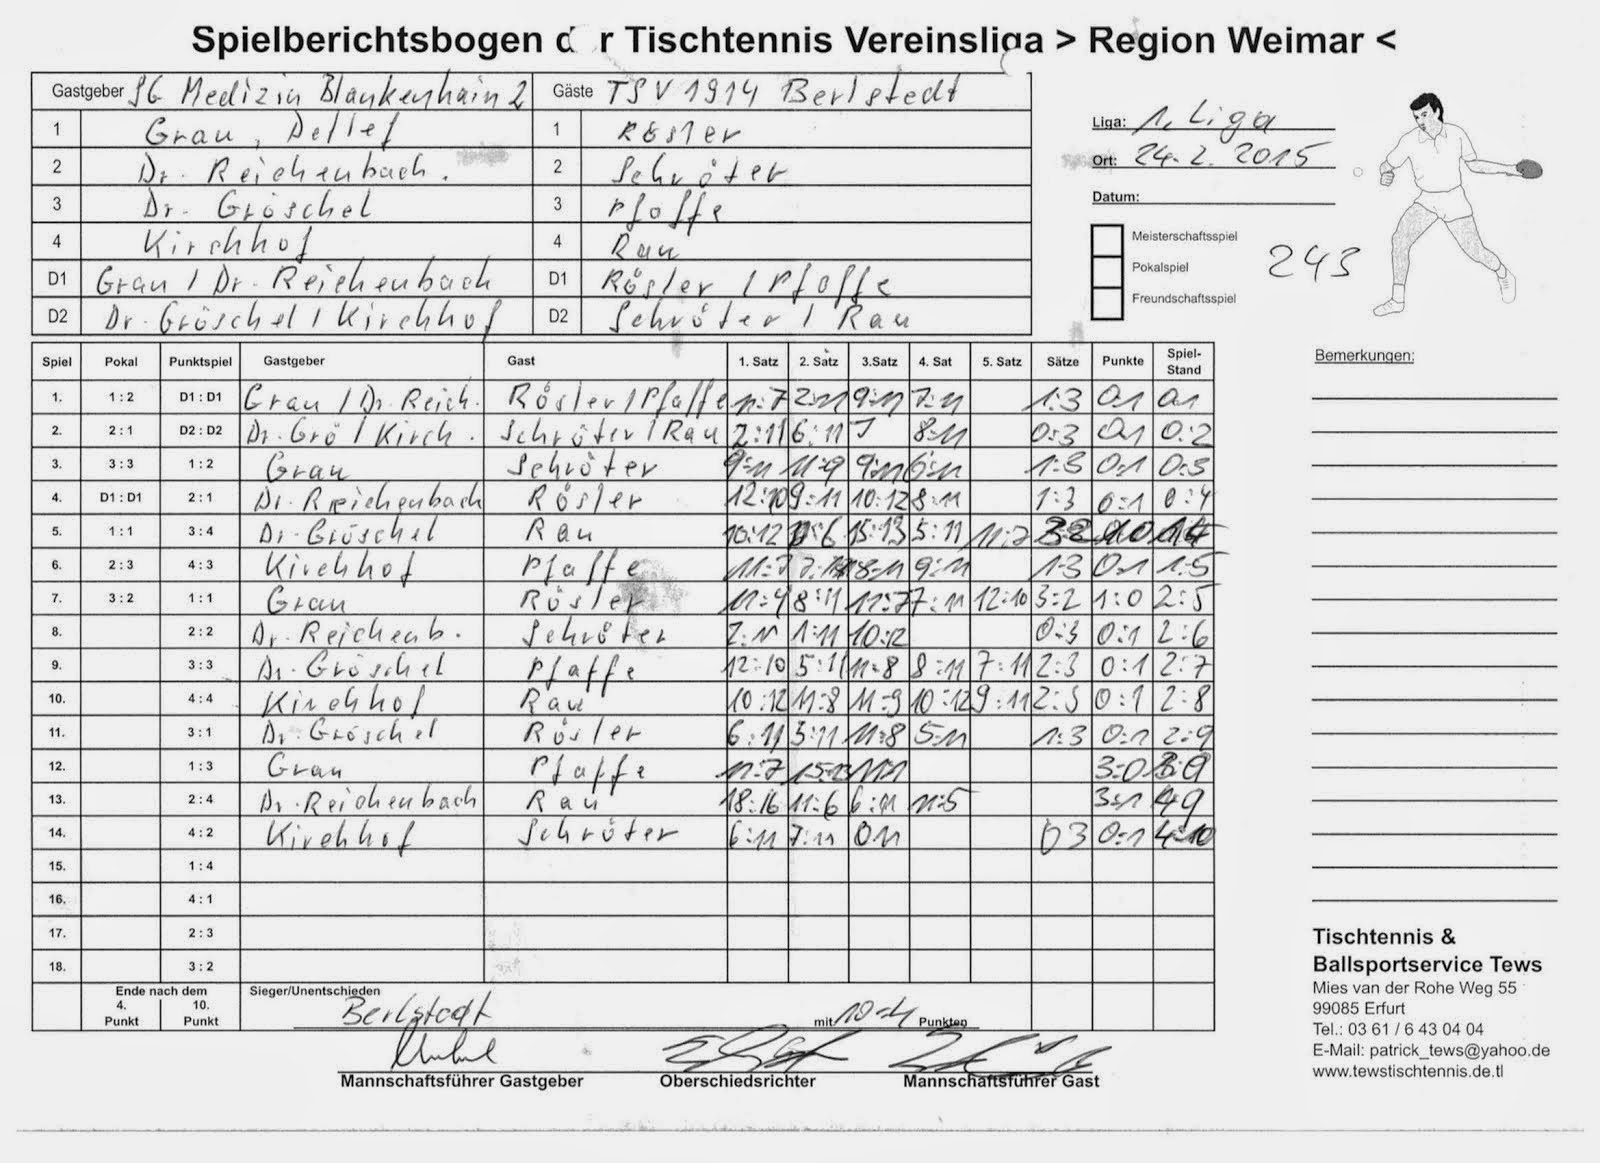 Spielberichtsbogen d r Tischtennis Vereinsliga > Region Weimar <
Gastgeber SG Medizin Blankenhain 2 Gäste TSV 1914 Berlstedt
1 Grau, Detlef 1 Rösler
2 Dr. Reichenbach. 2 Schröter
3 Dr. Gröschel 3 Pfaffe
4 Kirchhof 4 Rau
D1 Grau / Dr. Reichenbach D1 Rösler / Pfaffe
D2 Dr. Gröschel / Kirchhof D2 Schröter / Rau
Liga: 1. Liga
Ort: 24.2. 2015
Datum:
Meisterschaftsspiel
Pokalspiel
Freundschaftsspiel
243
Spiel Pokal Punktspiel Gastgeber Gast 1. Satz 2. Satz 3.Satz 4. Sat 5. Satz Sätze Punkte Spiel-Stand
1. 1 : 2 D1 : D1 Grau / Dr. Reich. Rösler / Pfaffe 11:7 2:11 9:11 7:11 1:3 0:1 0:1
2. 2 : 1 D2 : D2 Dr. Grö / Kirch. Schröter / Rau 2:11 6:11 8:11 0:3 0:1 0:2
3. 3 : 3 1 : 2 Grau Schröter 9:11 11:9 9:11 6:11 1:3 0:1 0:3
4. D1 : D1 2 : 1 Dr. Reichenbach Rösler 12:10 9:11 10:12 8:11 1:3 0:1 0:4
5. 1 : 1 3 : 4 Dr. Gröschel Rau 10:12 15:13 5:11
6. 2 : 3 4 : 3 Kirchhof Pfaffe 11:7 8:11 9:11 1:3 0:1 1:5
7. 3 : 2 1 : 1 Grau Rösler 11:4 8:11 11:7 7:11 12:10 3:2 1:0 2:5
8. 2 : 2 Dr. Reichenb. Schröter 7:11 1:11 10:12 0:3 0:1 2:6
9. 3 : 3 Dr. Gröschel Pfaffe 12:10 5:11 11:8 8:11 7:11 2:3 0:1 2:7
10. 4 : 4 Kirchhof Rau 10:12 11:8 11:9 10:12 9:11 2:3 0:1 2:8
11. 3 : 1 Dr. Gröschel Rösler 6:11 5:11 11:8 5:11 1:3 0:1 2:9
12. 1 : 3 Grau Pfaffe 11:7 15:13 3:0 3:9
13. 2 : 4 Dr. Reichenbach Rau 18:16 11:6 6:11 11:5 3:1 4:9
14. 4 : 2 Kirchhof Schröter 6:11 7:11 0 3 0:1 4:10
15. 1 : 4
16. 4 : 1
17. 2 : 3
18. 3 : 2
Ende nach dem
4. Punkt 10. Punkt
Sieger/Unentschieden
Berlstedt mit 10:4 Punkten
Mannschaftsführer Gastgeber Oberschiedsrichter Mannschaftsführer Gast
Bemerkungen:
Tischtennis &
Ballsportservice Tews
Mies van der Rohe Weg 55
99085 Erfurt
Tel.: 03 61 / 6 43 04 04
E-Mail: patrick_tews@yahoo.de
www.tewstischtennis.de.tl